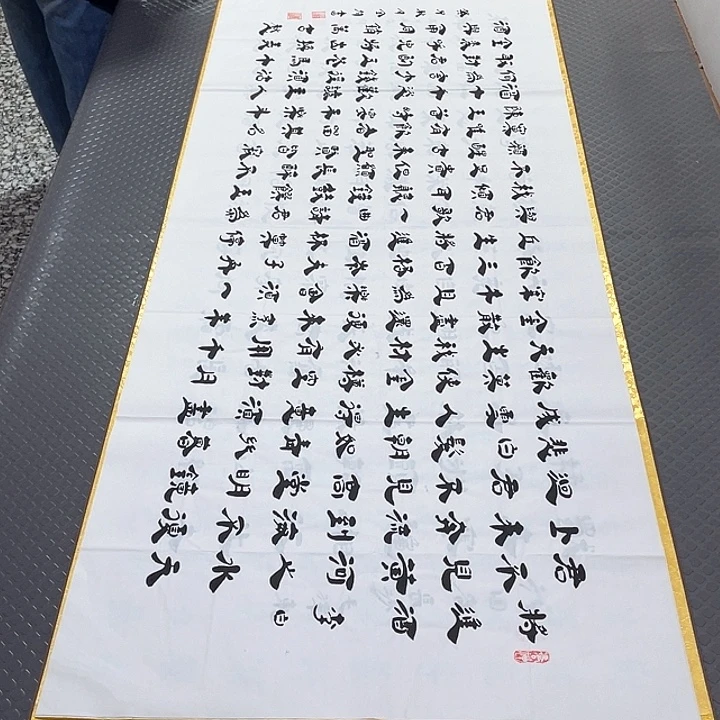 將進酒李白
君不見黃河之水天
上來奔流到海不復
迴君不見高堂明鏡
悲白髮朝如青絲暮
成雪人生得意須盡
歡莫使金樽空對月
天生我材必有用千
金散盡還復來烹羊
宰牛且為樂會須一
飲三百杯岑夫子丹
丘生將進酒杯莫停
與君歌一曲請君為
我傾耳聽鐘鼓饌玉
不足貴但願長醉不
願醒古來聖賢皆寂
寞惟有飲者留其名
陳王昔時宴平樂斗
酒十千恣歡謔主人
何為言少錢徑須沽
取對君酌五花馬千
金裘呼兒將出換美
酒與爾同銷萬古愁